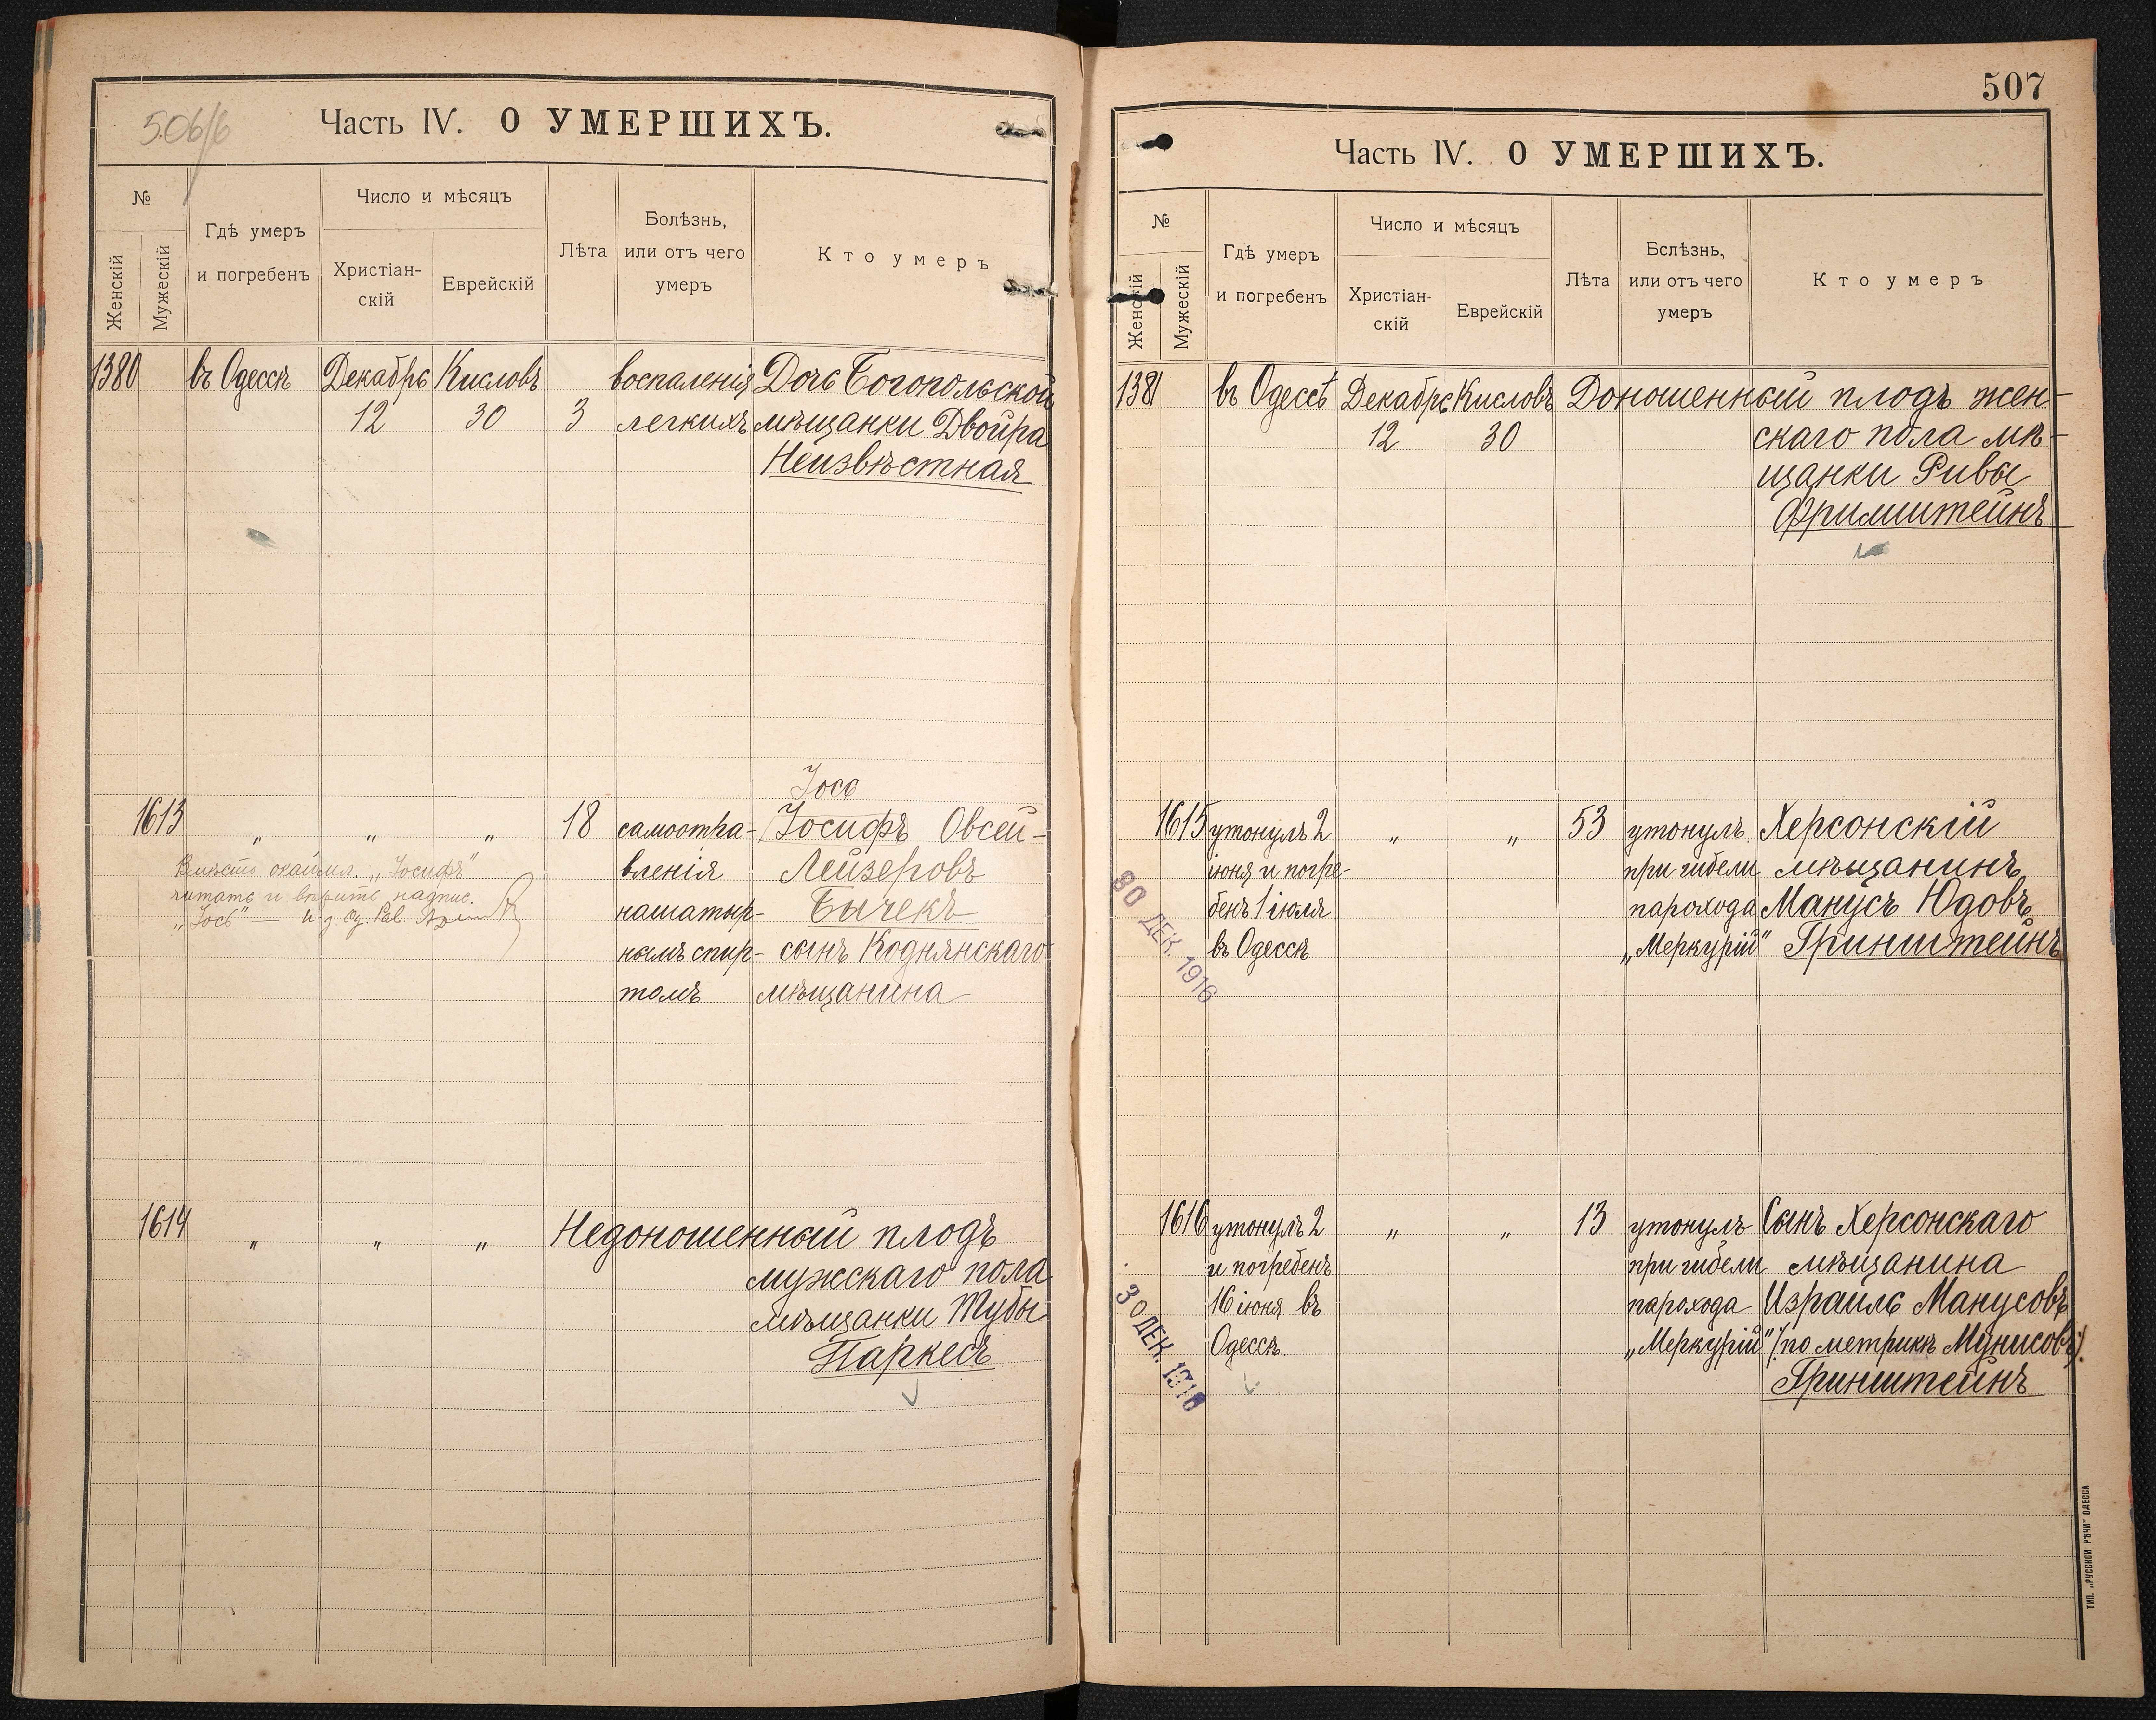 506/б
Часть IV. О УМЕРШИХЪ.
№
Женскій
Мужескій
Гдѣ умеръ
и погребенъ
Число и мѣсяцъ
Христіан-
скій
Еврейскій
Лѣта
Болѣзнь,
или отъ чего
умеръ
Кто умеръ
1380 въ Одессѣ Декабрь Кисловъ воспаленія Дочь Богопольской
12 30 3 легкихъ мѣщанки Двойра
Неизвѣстная
Іось
1613 „ „ „ 18 самоотра- Іосифъ Овсей-
вленія Лейзеровъ
нашатыр- Бычекъ
нымъ спир- сынъ Коднянскаго
томъ мѣщанина
Вмѣсто окаймл. „Іосифъ"
читать и вѣрить надпис.
„Іось" — и. д. Од. Рав.
1614 „ „ „ Недоношенный плодъ
мужскаго пола
мѣщанки Тубы
Паркесъ
507
Часть IV. О УМЕРШИХЪ.
№
Женскій
Мужескій
Гдѣ умеръ
и погребенъ
Число и мѣсяцъ
Христіан-
скій
Еврейскій
Лѣта
Бслѣзнь,
или отъ чего
умеръ
Кто умеръ
1381 въ Одессѣ Декабрь Кисловъ Доношенный плодъ жен-
12 30 скаго пола мѣ-
щанки Ривы
Фримштейнъ
1615 утонулъ 2 „ „ 53 утонулъ Херсонскій
іюня и погре- при гибели мѣщанинъ
бенъ 1 іюля парохода Манусъ Юдовъ
въ Одессѣ „Меркурій" Гринштейнъ
30 ДЕК. 1916
1616 утонулъ 2 „ „ 13 утонулъ Сынъ Херсонскаго
и погребенъ при гибели мѣщанина
16 іюня въ парохода Израиль Манусовъ
Одессѣ. „Меркурій" /по метрикѣ Мунисовъ/.
Гринштейнъ
30 ДЕК. 1916
ТИП. „РУССКОЙ РѢЧИ" ОДЕССА